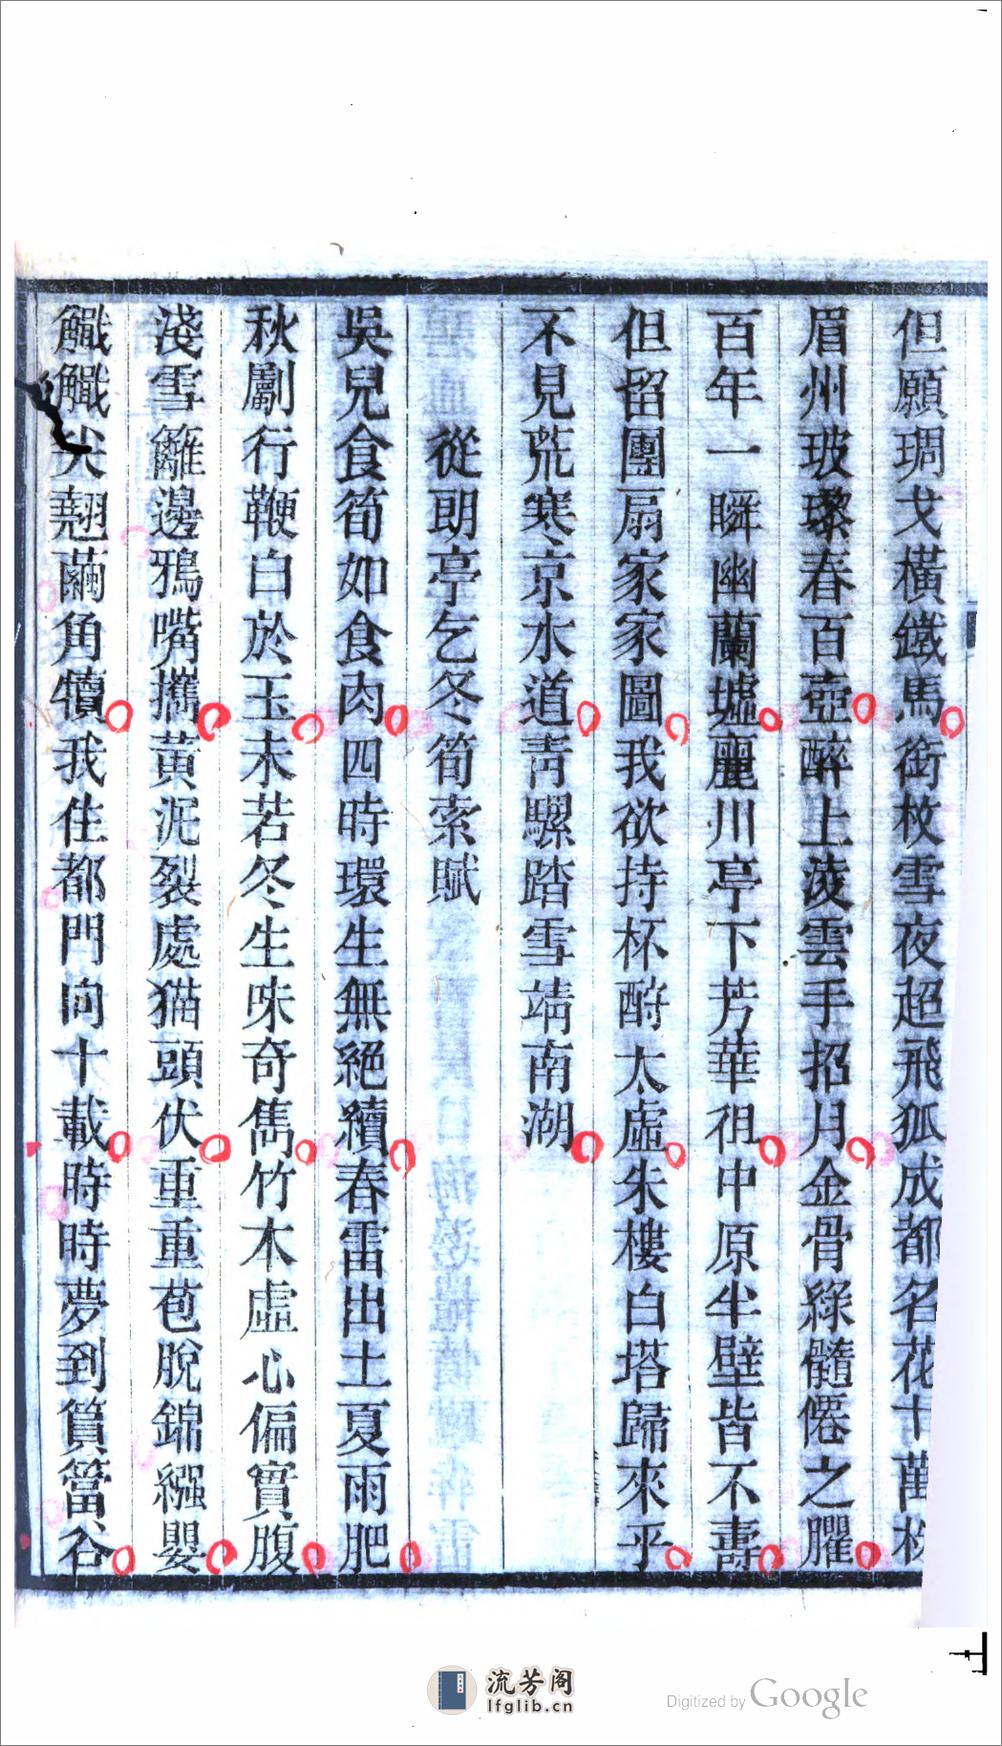 但願琱戈橫鐵馬銜枚雪夜超飛狐成都名花十萬
眉州玻瓈春百壺醉上淩雲手招月金骨綠髓僊之臞
百年一瞬幽蘭墟麗川亭下芳華徂中原半壁皆不壽
但留團扇家家圖我欲持杯酹太虛朱樓白塔歸來乎
不見荒寒京水道青騾踏雪靖南湖
從朙亭乞冬筍索賦
吳兒食筍如食肉四時環生無絕續春雷出土夏雨肥
秋劚行鞭白於玉未若冬生味奇雋竹木虛心偏實腹
淺雪籬邊鴉嘴攜黃泥裂處猫頭伏重重苞脫錦繈嬰
觿觿尖翹繭角犢我住都門向十載時時夢到篔簹谷
流芳阁
lfglib.cn
Digitized by Google